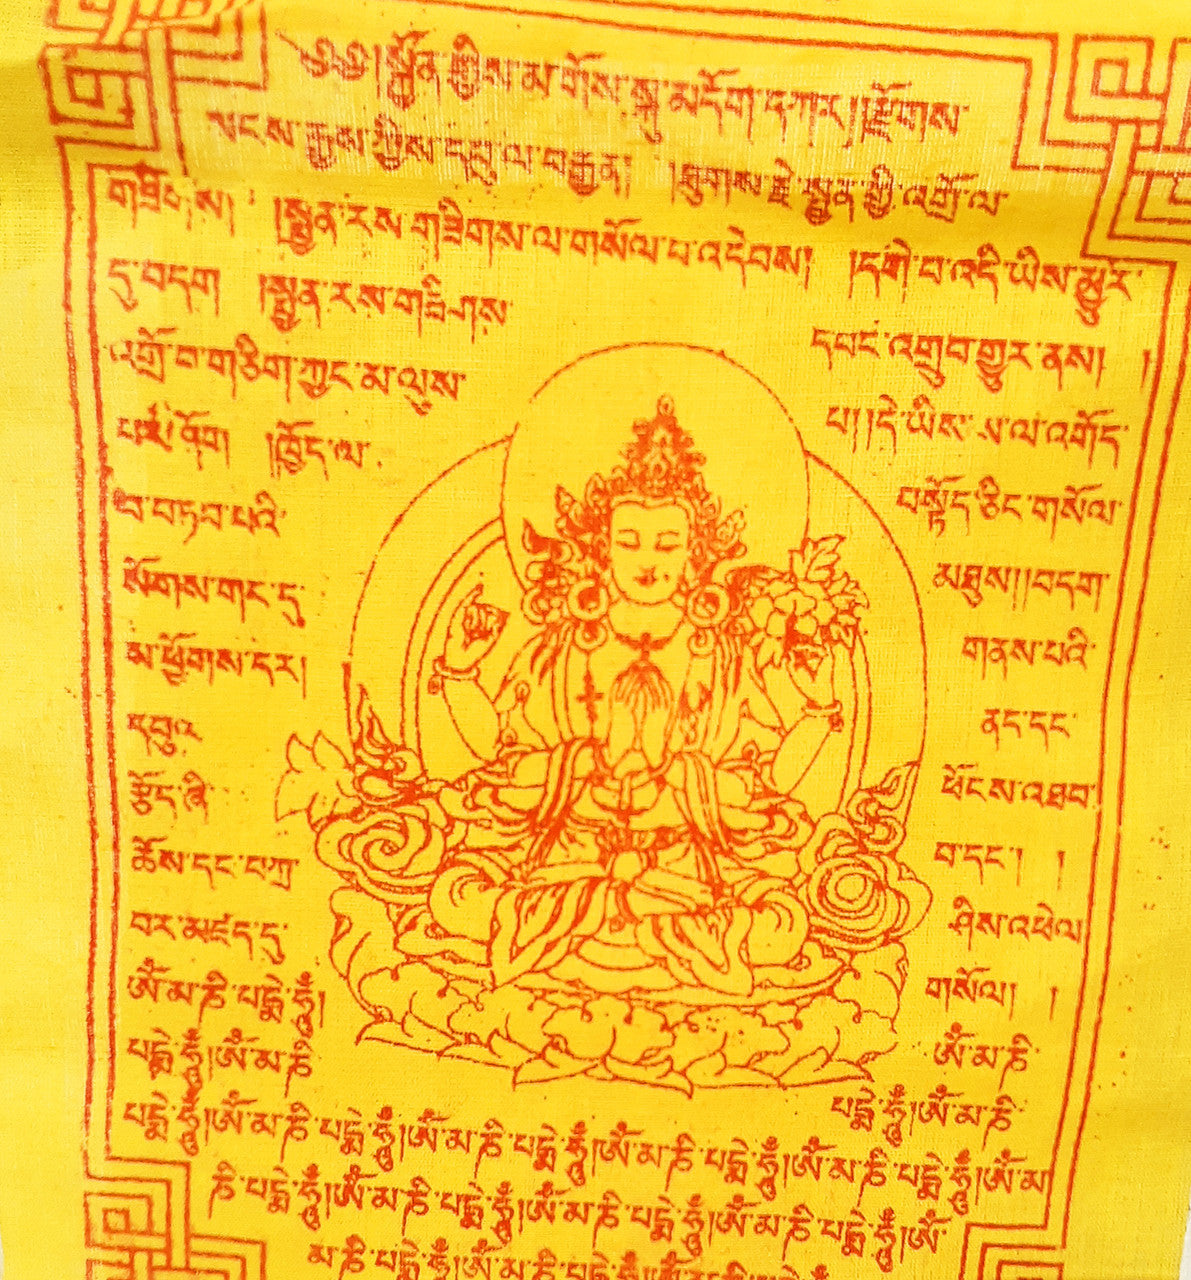 ༄༅། །སྐྱོན་གྱིས་མ་གོས་སྐུ་མདོག་དཀར། །རྫོགས་
སངས་རྒྱས་ཀྱིས་དབུ་ལ་བརྒྱན། །ཐུགས་རྗེ་སྤྱན་གྱི་འགྲོ་ལ་
གཟིགས། །སྤྱན་རས་གཟིགས་ལ་གསོལ་པ་འདེབས། །དགེ་བ་འདི་ཡིས་མྱུར་
དུ་བདག །སྤྱན་རས་གཟིགས་ དབང་འགྲུབ་གྱུར་ནས། །
འགྲོ་བ་གཅིག་ཀྱང་མ་ལུས་ པ། །དེ་ཡིས་ས་ལ་འགོད་
པར་ཤོག །ཁྱོད་ལ་ བསྟོད་ཅིང་གསོལ་
བ་བཏབ་པའི་ མཐུས། །བདག་
སོགས་གང་དུ་ གནས་པའི་
ས་ཕྱོགས་དེར། ནད་དང་
དབུལ་ ཕོངས་འཐབ་
རྩོད་ཞི་ བ་དང་། །
ཆོས་དང་བཀྲ་ ཤིས་འཕེལ་
བར་མཛད་དུ་ གསོལ། །
ༀ་མ་ཎི་པདྨེ་ཧཱུྃ། ༀ་མ་ཎི་
པདྨེ་ཧཱུྃ།ༀ་མ་ཎི་ པདྨེ་ཧཱུྃ།ༀ་མ་ཎི་
པདྨེ་ཧཱུྃ།ༀ་མ་ཎི་པདྨེ་ཧཱུྃ།ༀ་མ་ཎི་པདྨེ་ཧཱུྃ།ༀ་མ་ཎི་པདྨེ་ཧཱུྃ།ༀ་མ་ཎི་པདྨེ་ཧཱུྃ།ༀ་མ་
ཎི་པདྨེ་ཧཱུྃ།ༀ་མ་ཎི་པདྨེ་ཧཱུྃ།ༀ་མ་ཎི་པདྨེ་ཧཱུྃ།ༀ་མ་ཎི་པདྨེ་ཧཱུྃ།ༀ་
མ་ཎི་པདྨེ་ཧཱུྃ།ༀ་མ་ཎི་པདྨེ་ཧཱུྃ།ༀ་མ་ཎི་པདྨེ་